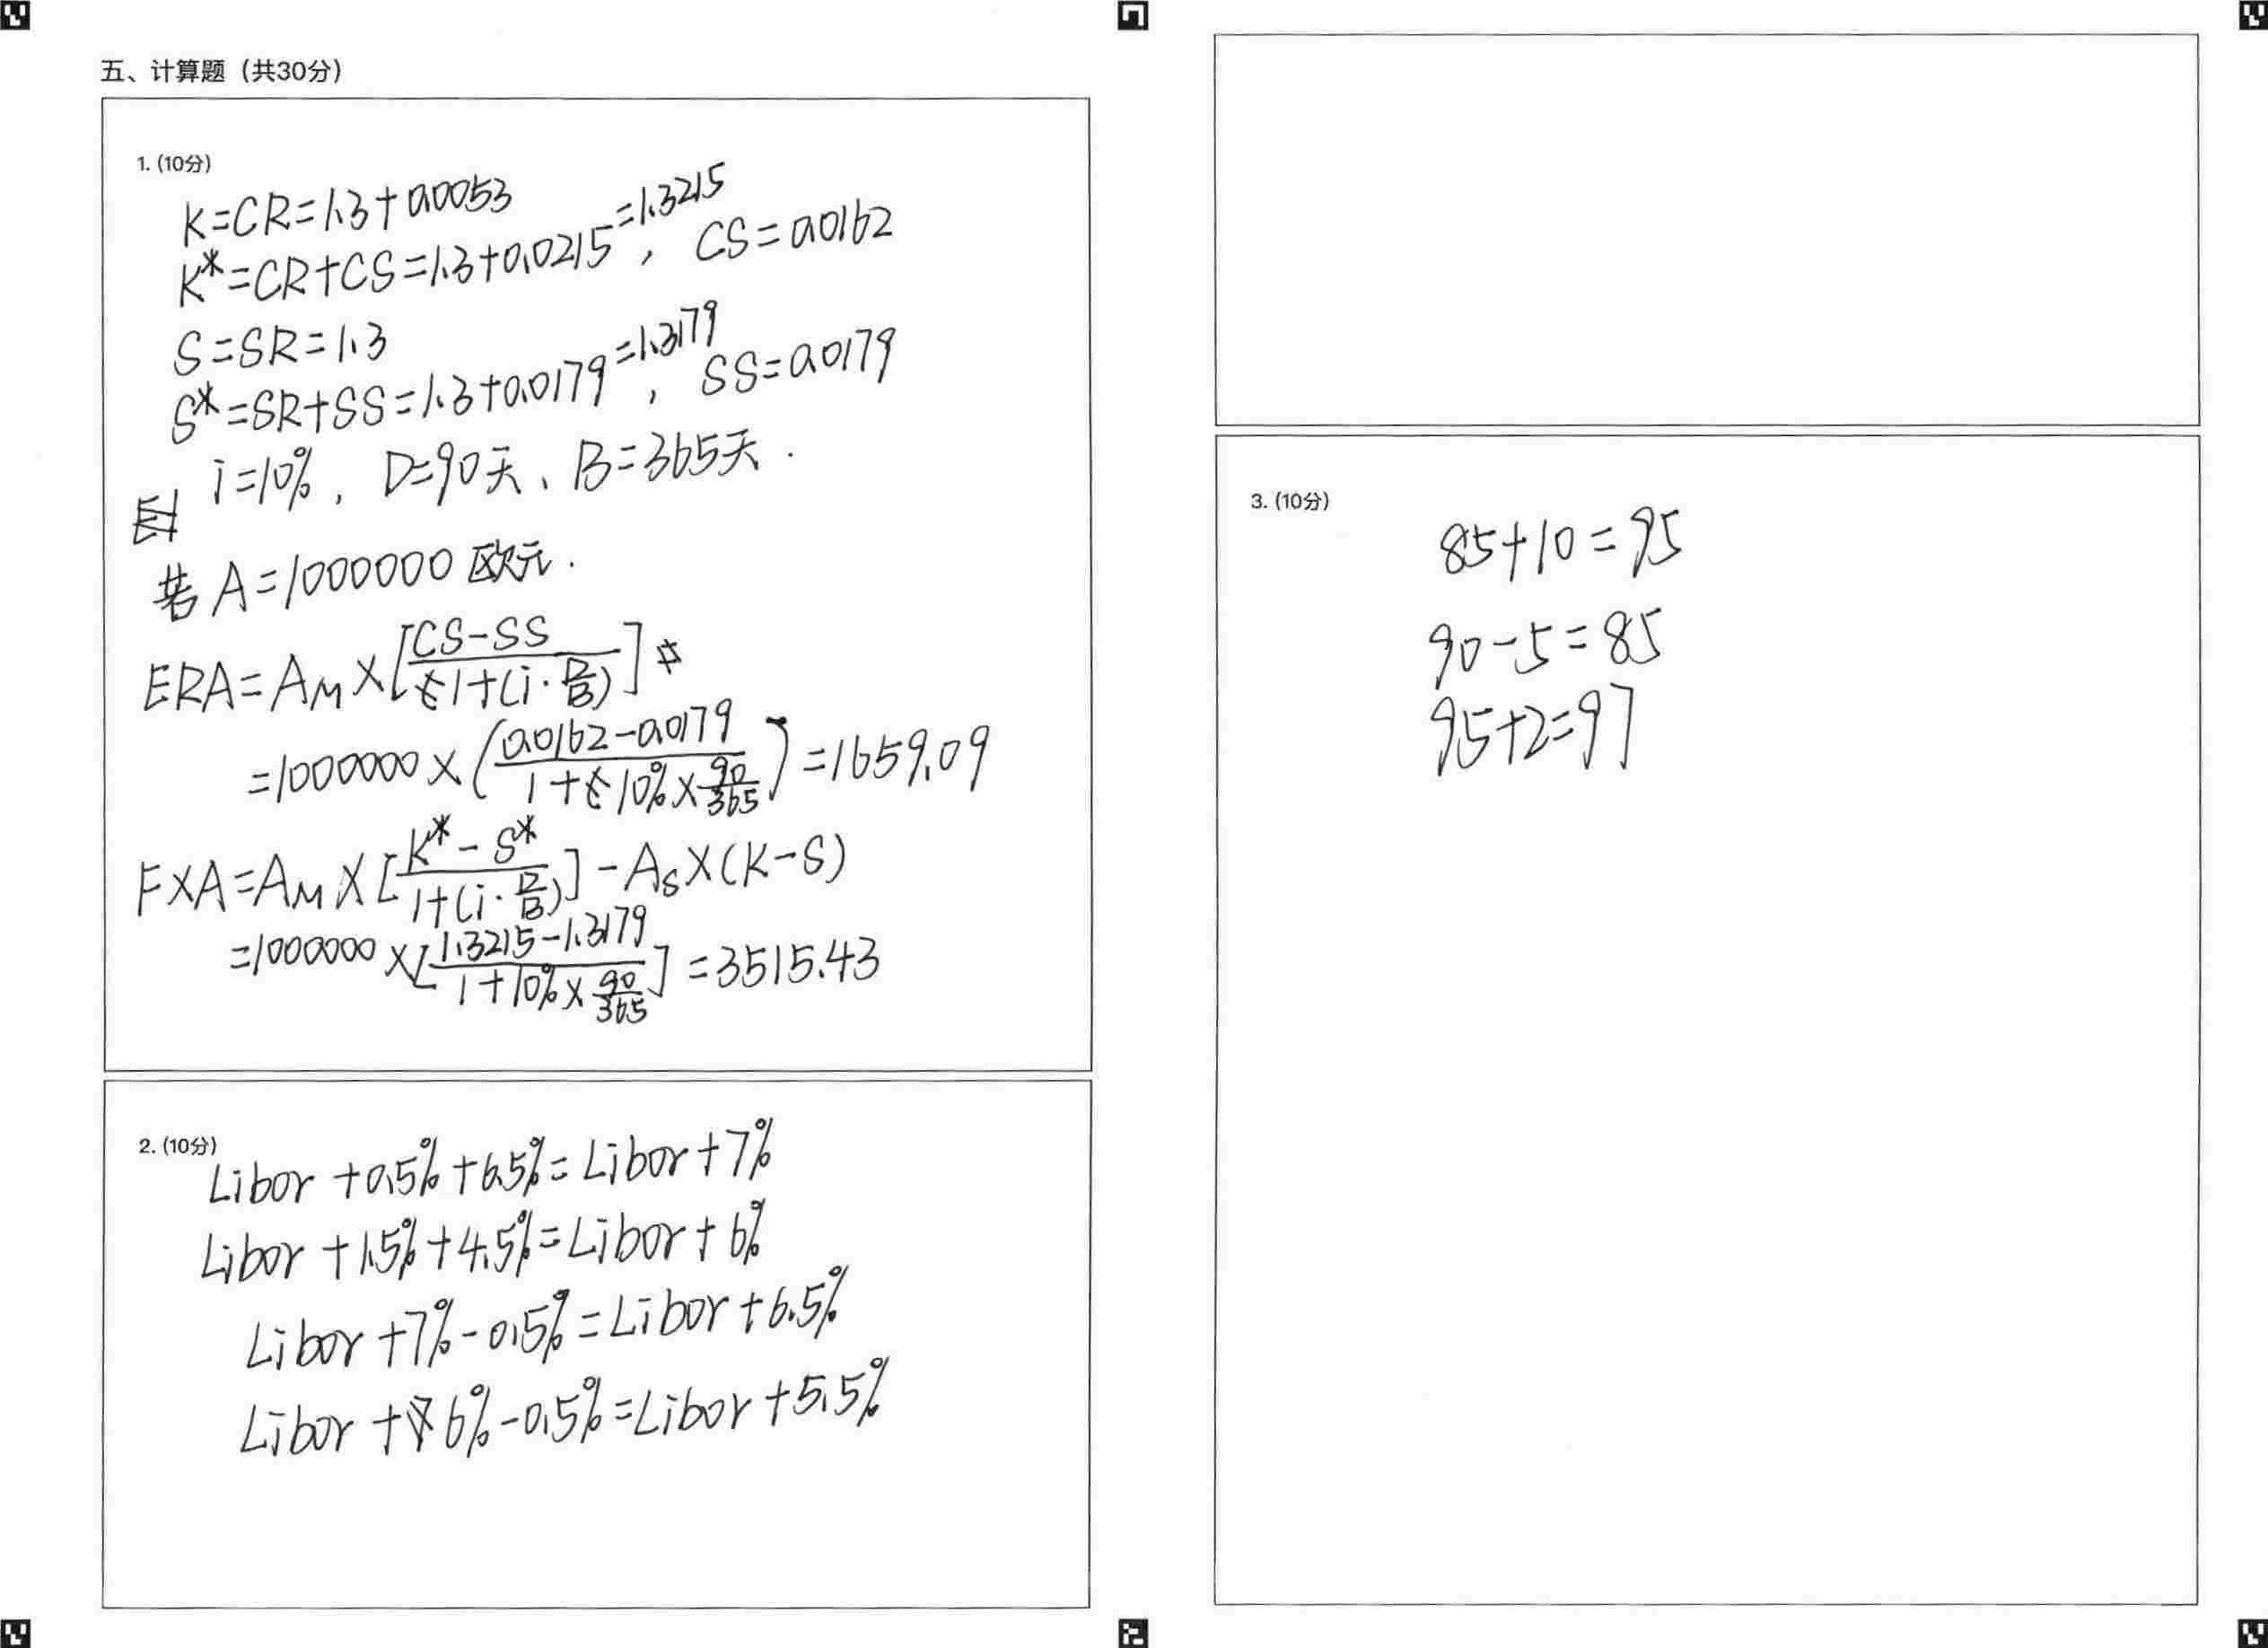 五、计算题（共30分）
1. (10分)
K=CR=1.3+0.0053
K*=CR+CS=1.3+0.0215=1.3215, CS=0.0162
S=SR=1.3
S*=SR+SS=1.3+0.0179=1.3179, SS=0.0179
i=10%, D=90天、B=365天.
若A=1000000欧元.
ERA=A_M×[(CS-SS)/(1+(i·D/B))]
=1000000×(0.0162-0.0179)/(1+10%×90/365)]=1659.09
FXA=A_M×[(K*-S*)/(1+(i·D/B))]-A_S×(K-S)
=1000000×[(1.3215-1.3179)/(1+10%×90/365)]=3515.43
2. (10分)
Libor+0.5%+6.5%=Libor+7%
Libor+1.5%+4.5%=Libor+6%
Libor+7%-0.5%=Libor+6.5%
Libor+6%-0.5%=Libor+5.5%
3. (10分)
85+10=95
90-5=85
95+2=97